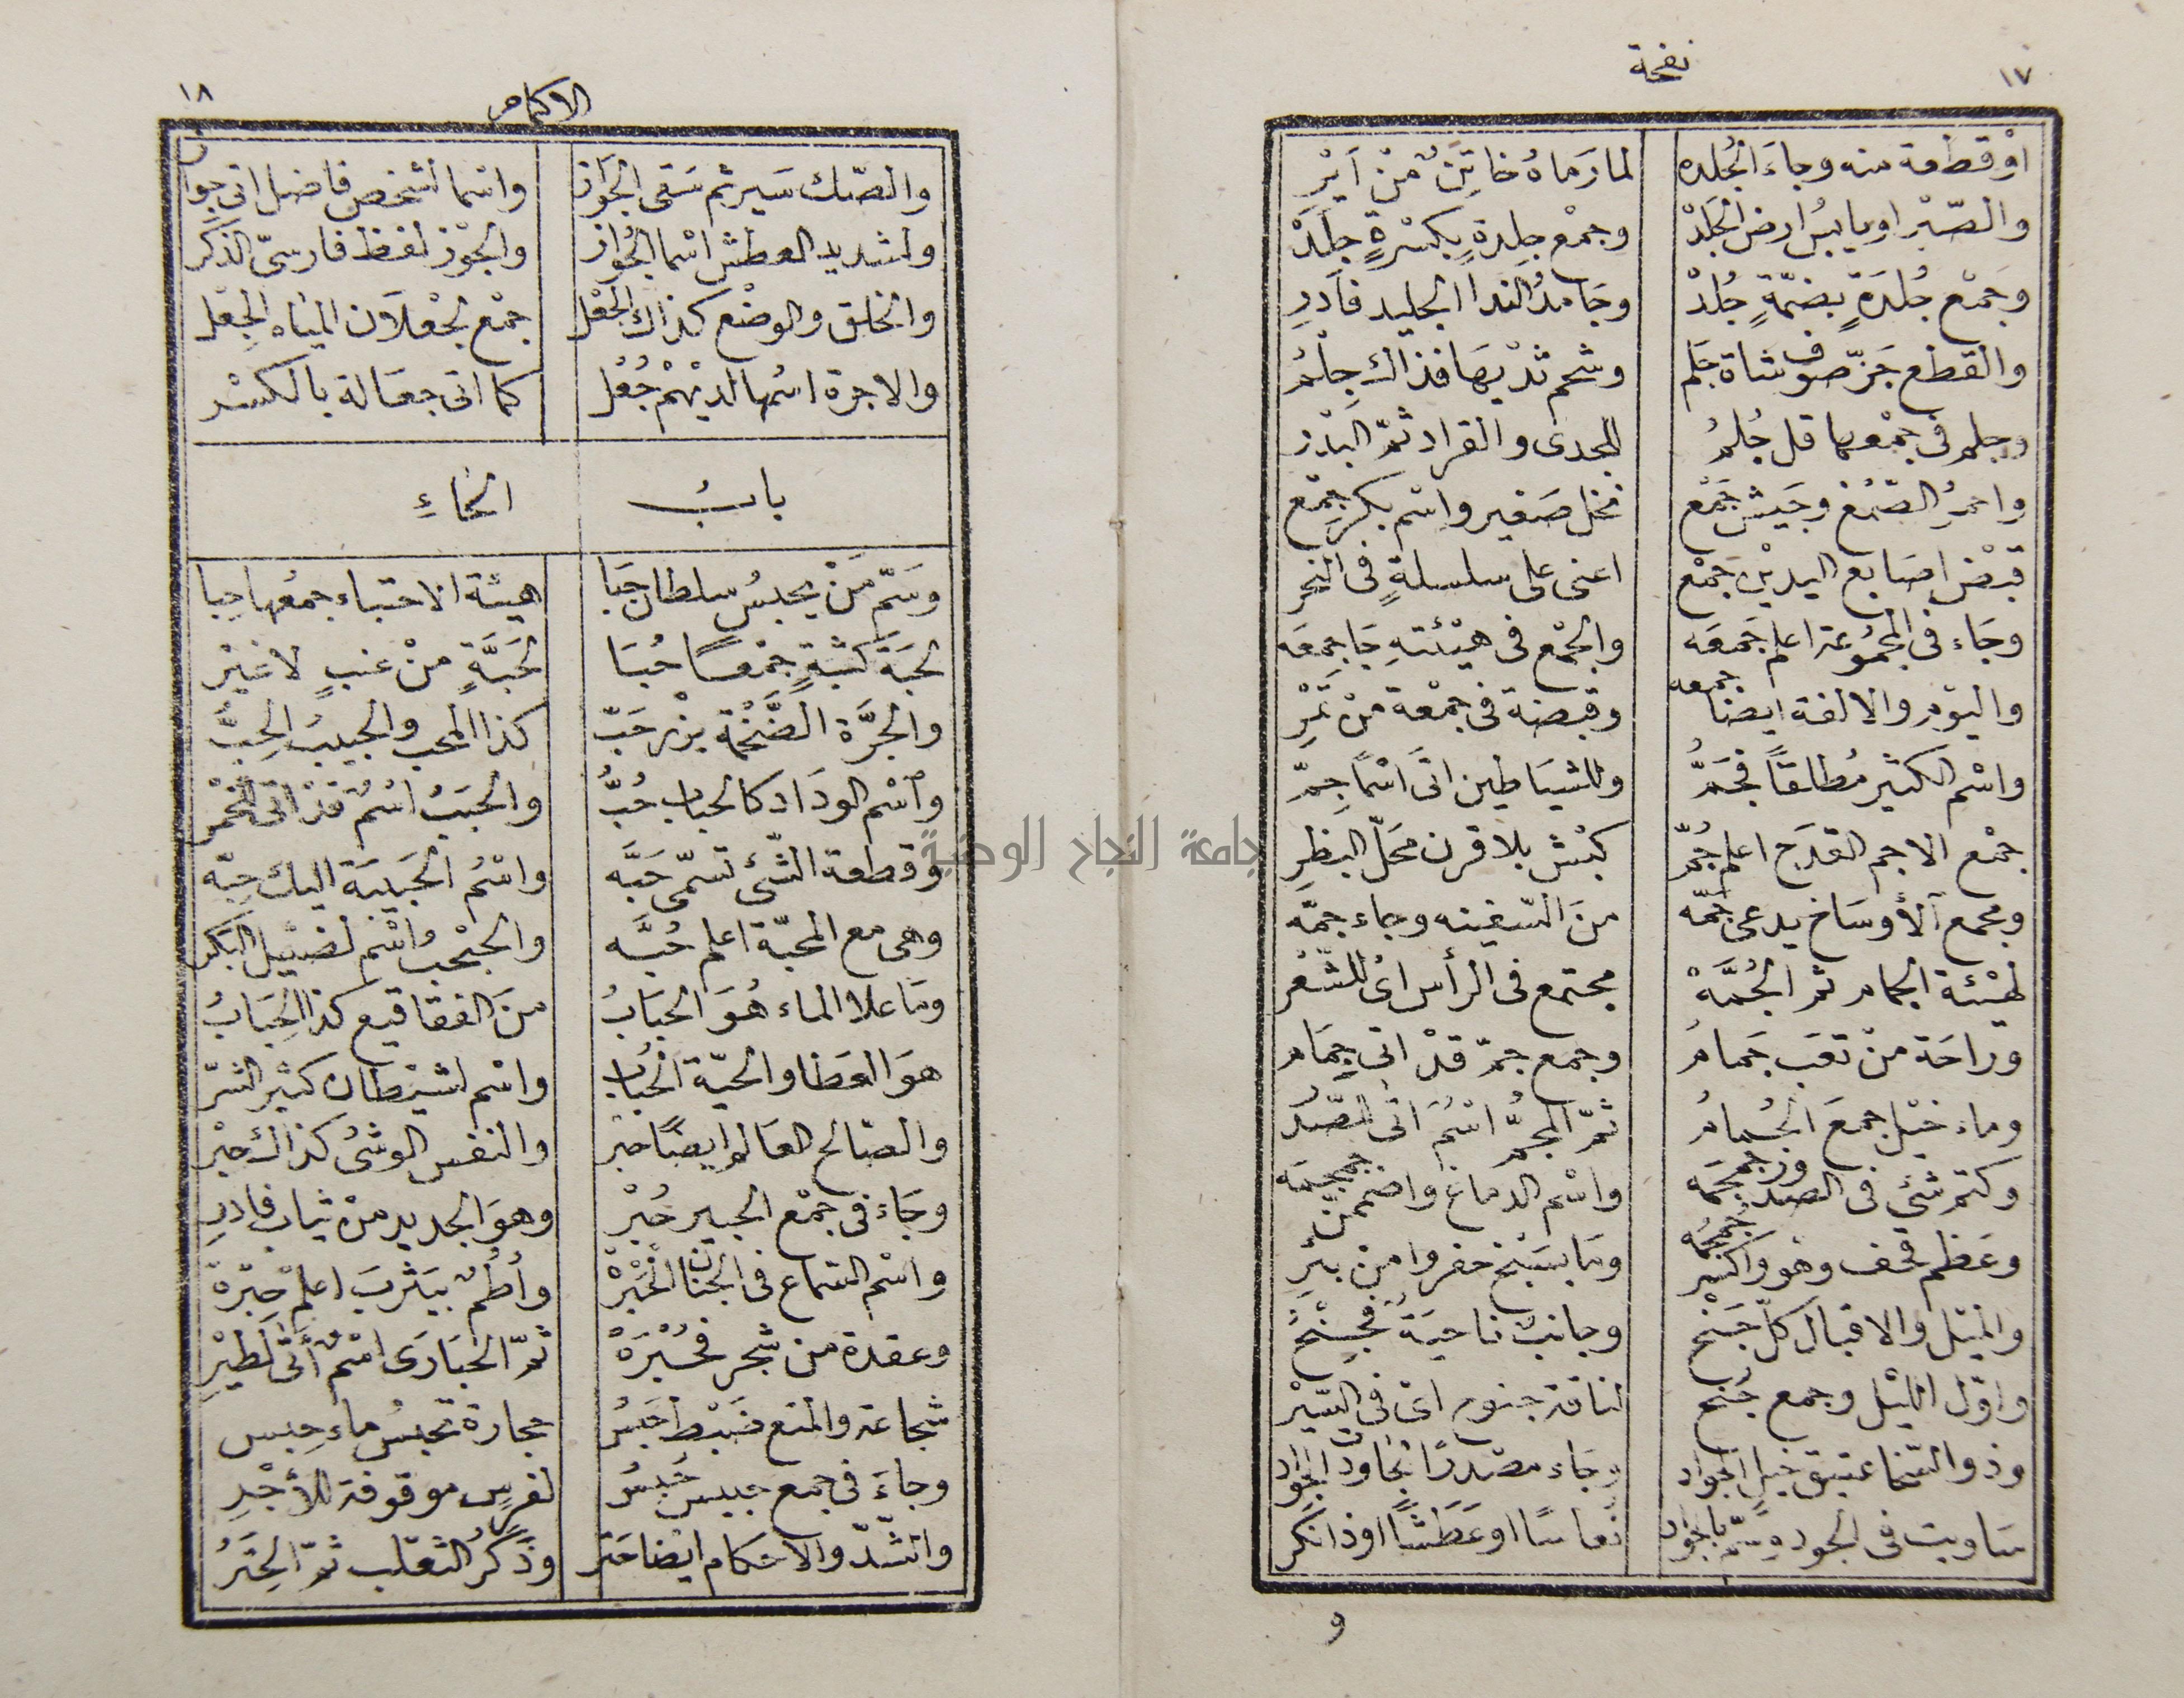 ١٧
نفحة
اوْ قطعة منه وجاءَ الجُلده لما رَماهُ خاتِنٌ مْن اَيْرِ
والصّبْر او يابسُ ارض الجَلَدْ وجمْع جِلدةٍ بِكسْرةٍ جِلَدْ
وَجَمْع جُلدَةٍ بضمّةٍ جُلدْ وجَامدُ الندا الجليد فاَدرِ
والقطع جَزّ صوف شاة جَلم وشحم ثدْيهَا فذاك جِلْمُ
وجلم فى جمْعهما قل جُلمُ للجدى والقراد ثمّ البَدْر
واحمرُ الصّمْغ وجَيش جَمْع نخل صَغير واسْم بكر جِمْع
قبْضُ اصَابع اليديْن جُمْع اعنى على سلسلةٍ فى النحْر
وجَاء فى المجْمُوعة اعلم جَمعَه والجمْع فى هيْئتهِ جَا جِمعَه
واليَوْمِ والالفة ايضًا جمعه وقبضة فى جمْعة مْن تَمْرِ
واسْم الكثير مُطلقاً فجَمُّ وللشيَاطين اتَى اسْمًا جِمّ
جمْع الاجم القدَح اعلم جُمّ كبْش بلا قرن محَلّ النظرِ
ومجمع الأوسَاخ يدعى جَمّه منَ السّفينه وجاء جِمَّه
لهيْئة الجمام ثم الجُمَّهْ مجتمع فى الرأس اىْ للشّعْر
وراحَة منْ تعَب جَمامُ وجمع جمّ قدْ اتى جِمَام
وماء خيْل جمعَ الجُمامُ ثمّ المجمُّ اسْمٌ اتى للصّدْر
وكتم شئي فى الصدور جَمجَمه واسْم الدماغ واضممن جمجمه
وعَظم قحف وهو واكسر جُمجُمه ومَا بسَبْخ حفروا من بئرِ
والميْل والاقبال كلّ جَنْح وجانبٌ ناحيَةٌ فجِنْحُ
واوّل الليْل وجمع جُنح لناقة جنوح اىْ فى السّيْر
وذو السّخا عتيق خيل الجواد وجَاء مصْدرًا لجاودَ الجِواد
سَاويت فى الجود وسمّ بالجُواد نُعاسًا او عَطَشًا اوذا نكرِ
و
١٨
الاكمام
والصّك سَير ثم سَقى الجَوَاز واسما لشخص فاضل اتى جواز
ولشديد العطش اسْما الجُوَاز والجَوْز لفظ فارسىّ الذكر
والخلق والوضْع كذاك الجَعْل جمْع لجعْلان المياه الجِعْل
والاجرة اسْمها لديْهمْ جُعْل كما اتى جعَالة بالكسْر
بابُ الحاءِ
وَسَمّ مَنْ يحبسُ سلطان حَبَا هيئة الاحتباء جمعُها حِبا
لحبَة كثبةٍ جمْعًا حُبَا لحَبَّةٍ منْ عنبٍ لا غيْر
والجَرَّة الضَّخْمة بزْر حَبّ كذا المحب والحبيبُ الحِبُّ
واسْم الودَاد كالحباب حُبُّ والحبَبُ اسْمٌ قدْ اتى للخمْر
وقطعة الشّئ تسمّى حَبَّه واسْمُ الحَبيبَة اليك حِبّه
وهى مع المحبّة اعلم حُبَّه والحبْحب اسْم لضئيل البكر
ومَا علا الماء هُوَ الحَبَابُ منَ الفقاقيع كذا الحِبَابُ
هوَ العَظا والحيّة الحُباب واسْم لشيْطان كثير الشرّ
والصّالح العَالم ايضًا حَبْر والنفس الوشىُ كذاك حِبْر
وجَاءَ فى جمْع الحبير حُبْرْ وهوَ الجديد منْ ثياب فادرِ
واسْم السّماع فى الجنان الحَبْرْهْ واُطُمٌ بيَثربَ اعلمْ حِبْرهْ
وعقدة من شجر فحُبْرَهْ ثمّ الحُبَارَى اسْمٌ اُتى لطيْرِ
شجاعة والمنع ضَبْط حَبسُ حجارة تحبسُ ماء حِبس
وجاءَ فى جمع حبيس حُبسُ لفرسٍ موقوفة للأجْرِ
والشّدّ والاحكام ايضًا حَتر وذَكَرُ الثعْلب ثمّ الحِتَرُ
جامعة النجاح الوطنية